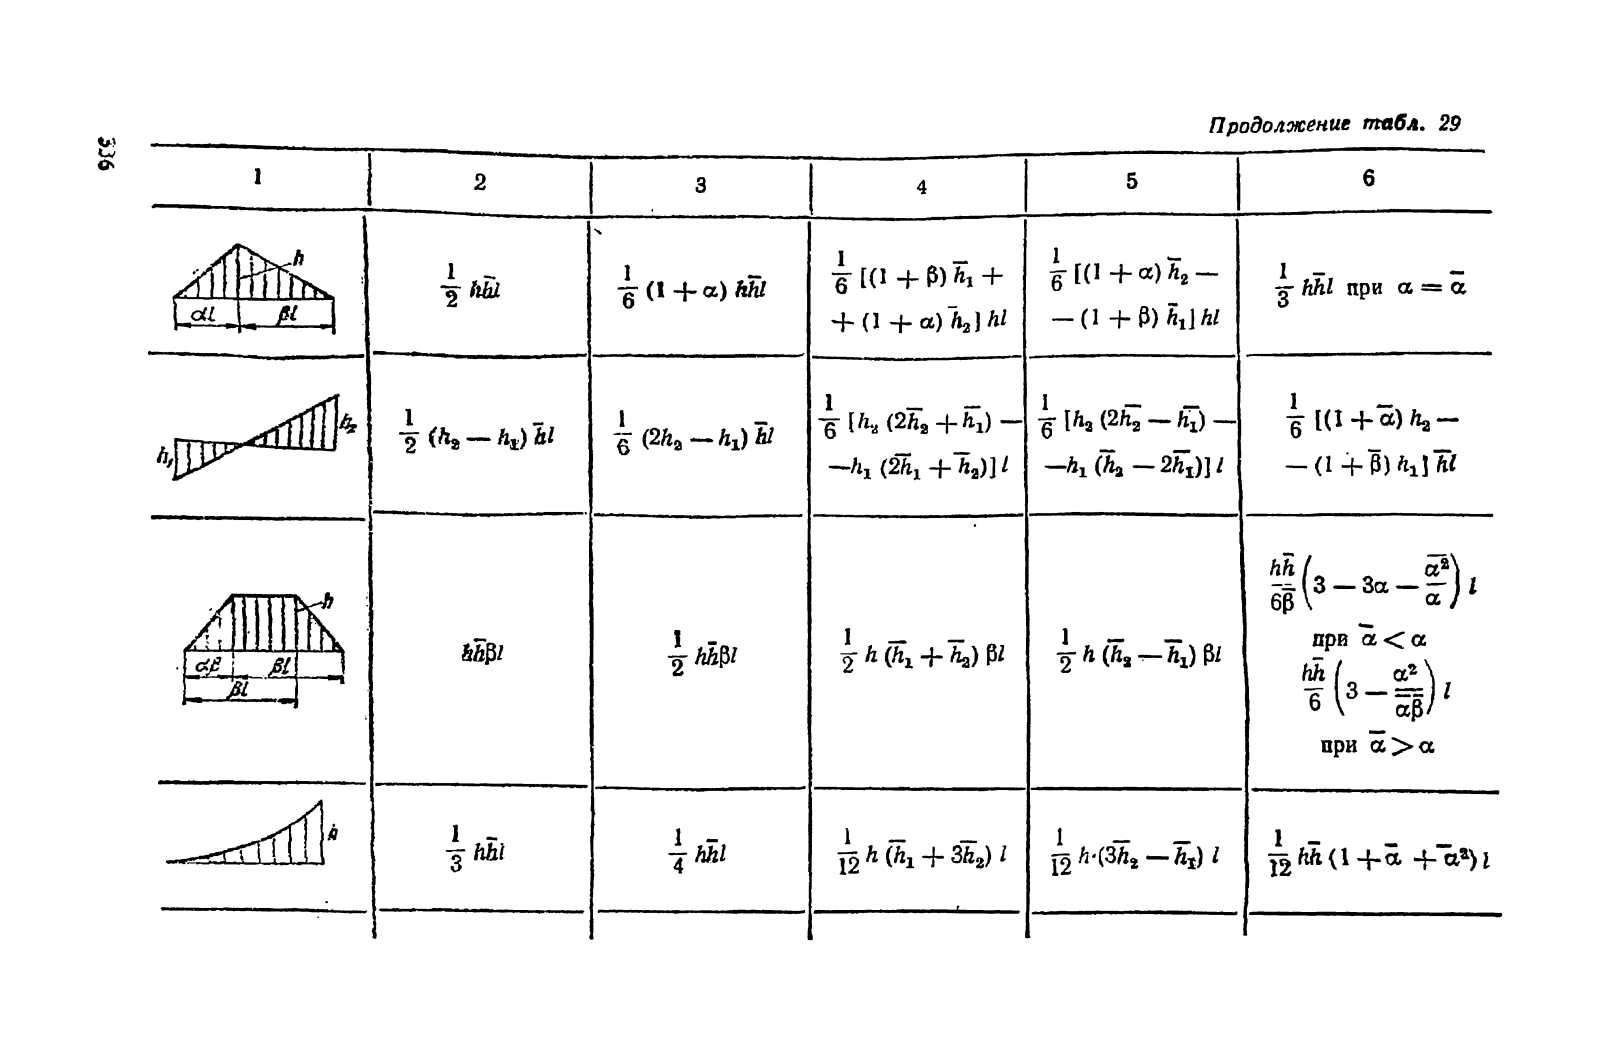 Продолжение табл. 29
336
1 2 3 4 5 6
h
αl βl
1/2 hh̄l
1/6 (1 + α) hh̄l
1/6 [(1 + β) h̄₁ +
+ (1 + α) h̄₂] hl
1/6 [(1 + α) h̄₂ —
— (1 + β) h̄₁] hl
1/3 hh̄l при α = ᾱ
h₁ h₂
1/2 (h₂ — h₁) h̄l
1/6 (2h₂ — h₁) h̄l
1/6 [h₂ (2h̄₂ + h̄₁) —
—h₁ (2h̄₁ + h̄₂)] l
1/6 [h₂ (2h̄₂ — h̄₁) —
—h₁ (h̄₂ — 2h̄₁)] l
1/6 [(1 + ᾱ) h₂ —
— (1 + β̄) h₁] h̄l
h
αβ βl
βl
hh̄βl
1/2 hh̄βl
1/2 h (h̄₁ + h̄₂) βl
1/2 h (h̄₂ — h̄₁) βl
hh̄/6β̄ (3 — 3α — ᾱ²/α) l
при ᾱ < α
hh̄/6 (3 — α²/ᾱβ̄) l
при ᾱ > α
h
1/3 hh̄l
1/4 hh̄l
1/12 h (h̄₁ + 3h̄₂) l
1/12 h·(3h̄₂ — h̄₁) l
1/12 hh̄ (1 + ᾱ + ᾱ²) l